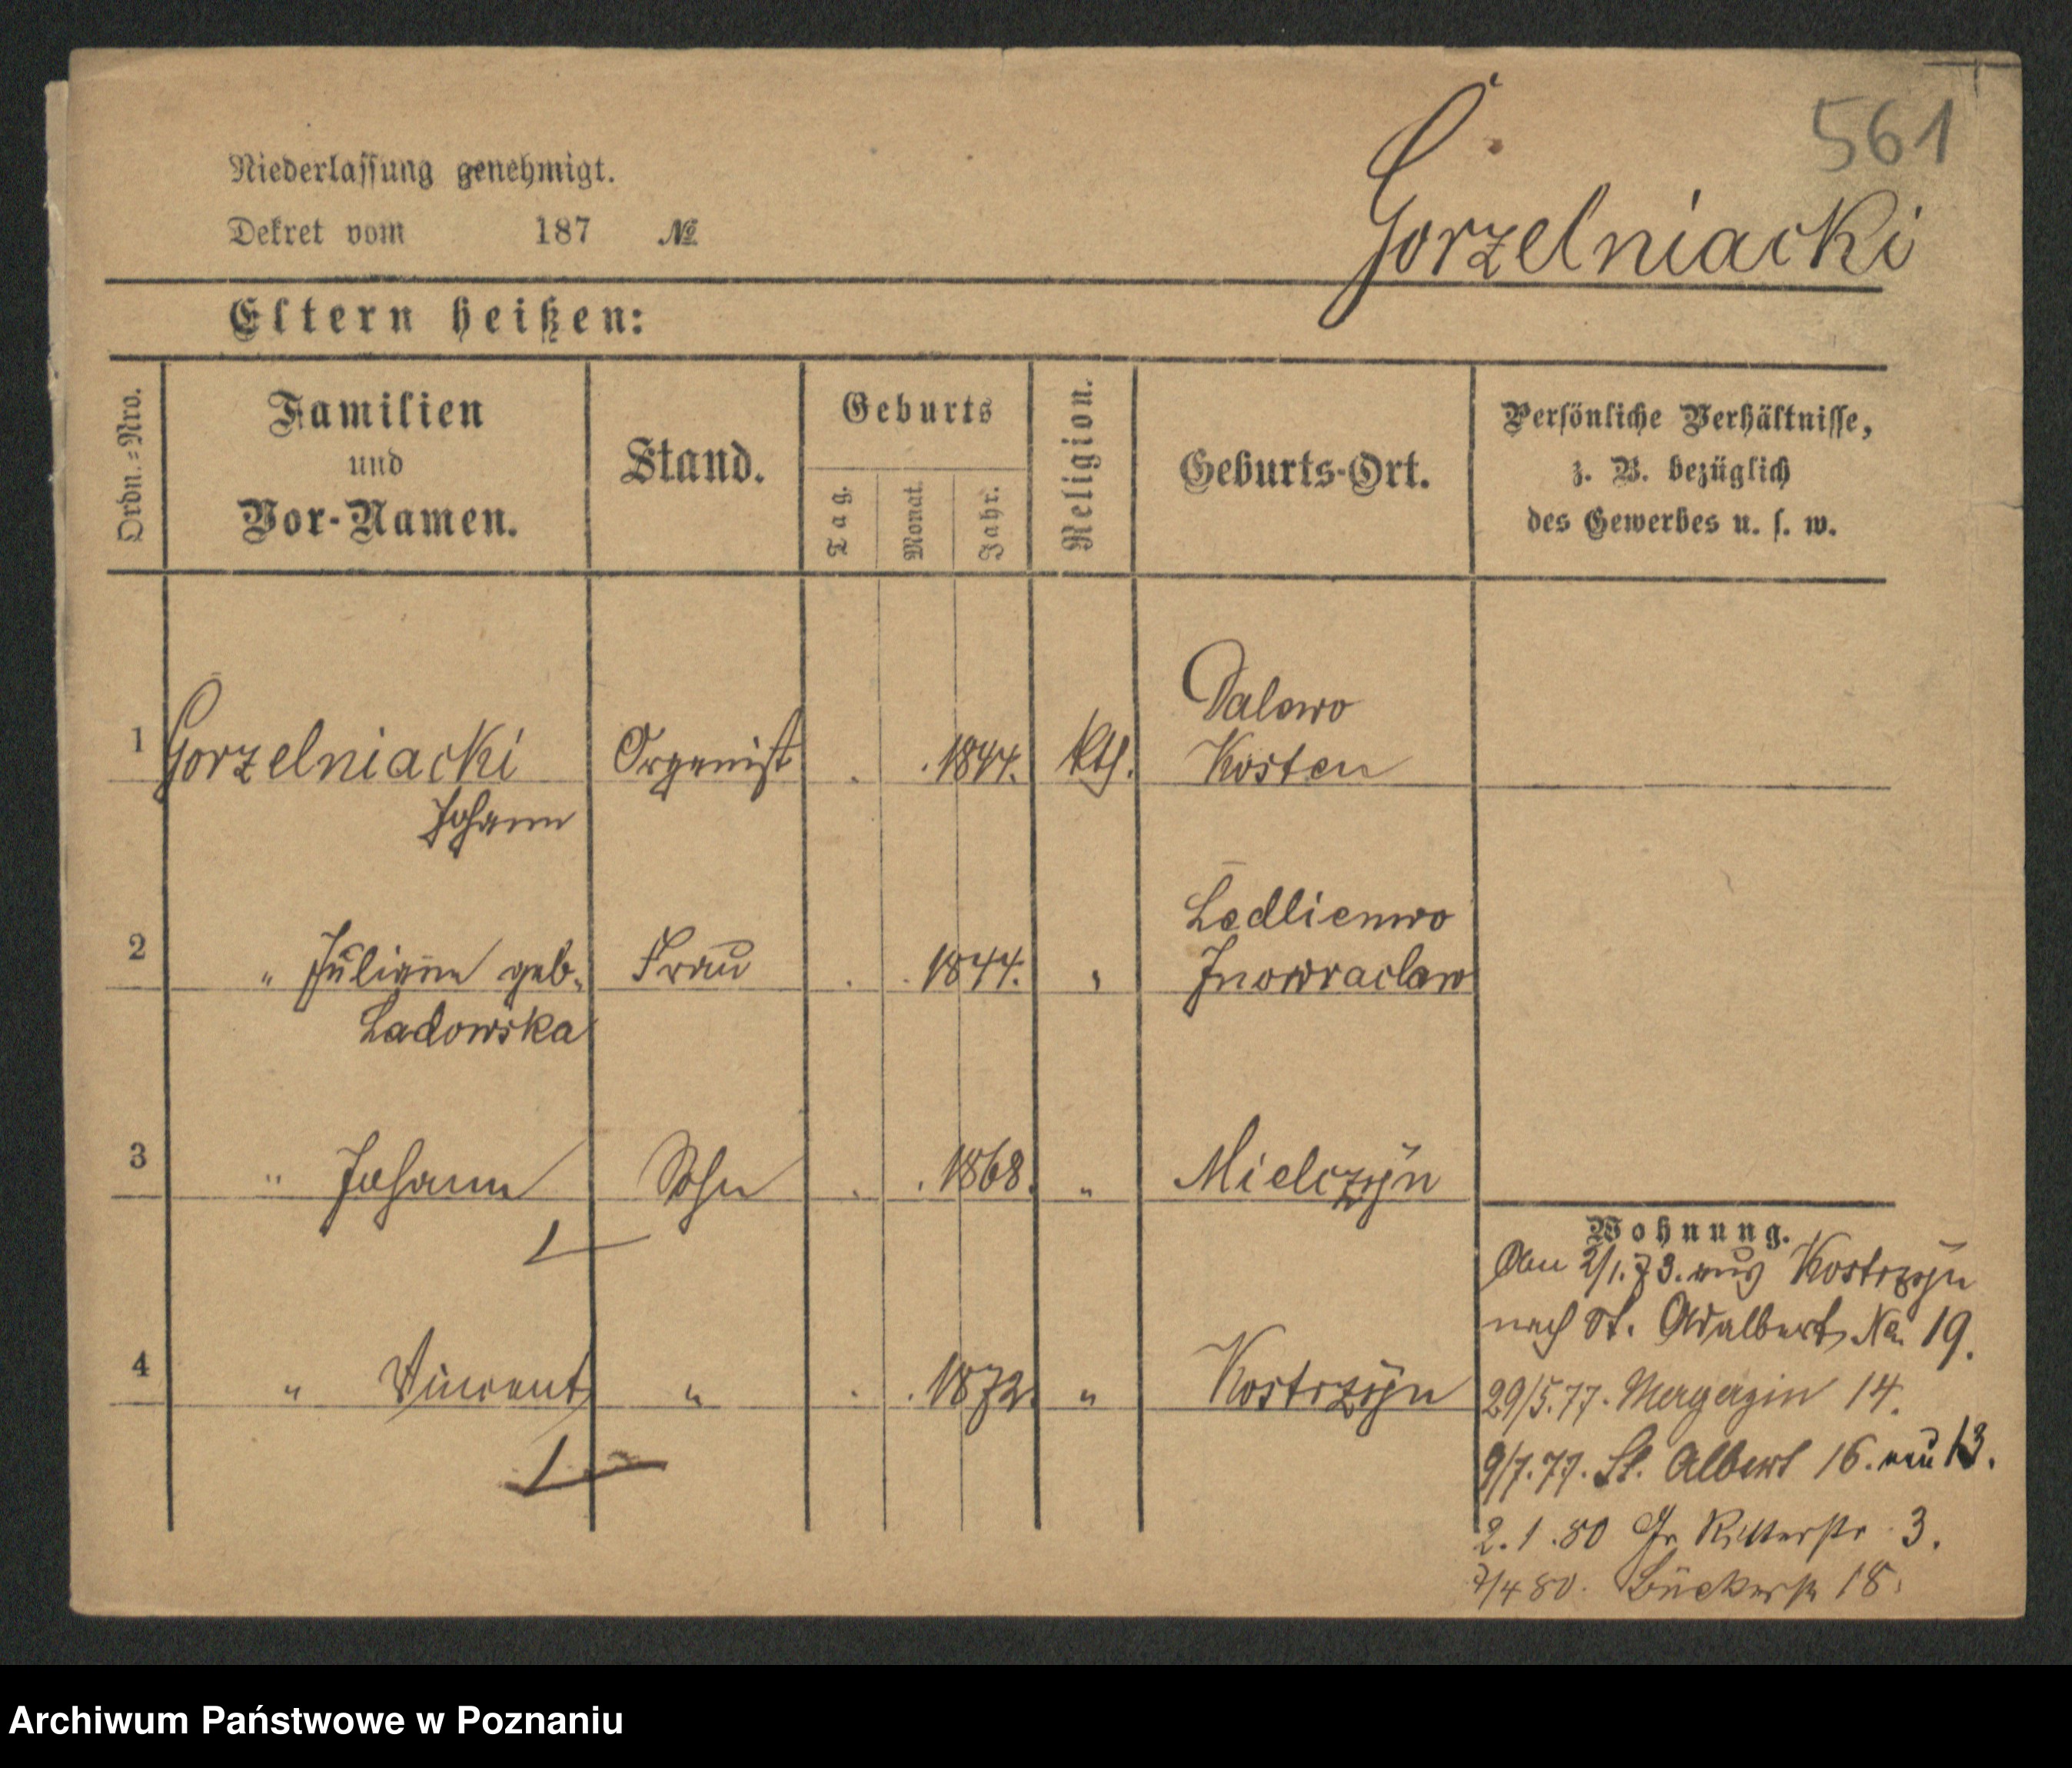 561
Niederlassung genehmigt.
Gorzelniacki
Dekret vom 187 №
Eltern heißen:
Ordn.-Nro.
Familien und Vor-Namen.
Stand.
Geburts
Tag. Monat. Jahr.
Religion.
Geburts-Ort.
Persönliche Verhältnisse,
z. B. bezüglich
des Gewerbes u. s. w.
Dalewo
1 Gorzelniacki Organist . . 1844. kth. Kosten
Johann
Ledlienwo
2 " Juliane geb. Frau . . 1844. " Inowraclaw
Ladowska
3 " Johann Sohn . . 1868. " Mielczyn
4 " Vincent " . . 1872. " Kostrzyn
Wohnung.
Am 2/1.73. aus Kostrzyn
nach St. Adalbert No 19.
29/5.77. Magazin 14.
9/7.77. St. Albert 16. neu 13.
2.1.80 Gr Ritterstr 3.
7/4 80. Bäckerstr 18.
Archiwum Państwowe w Poznaniu